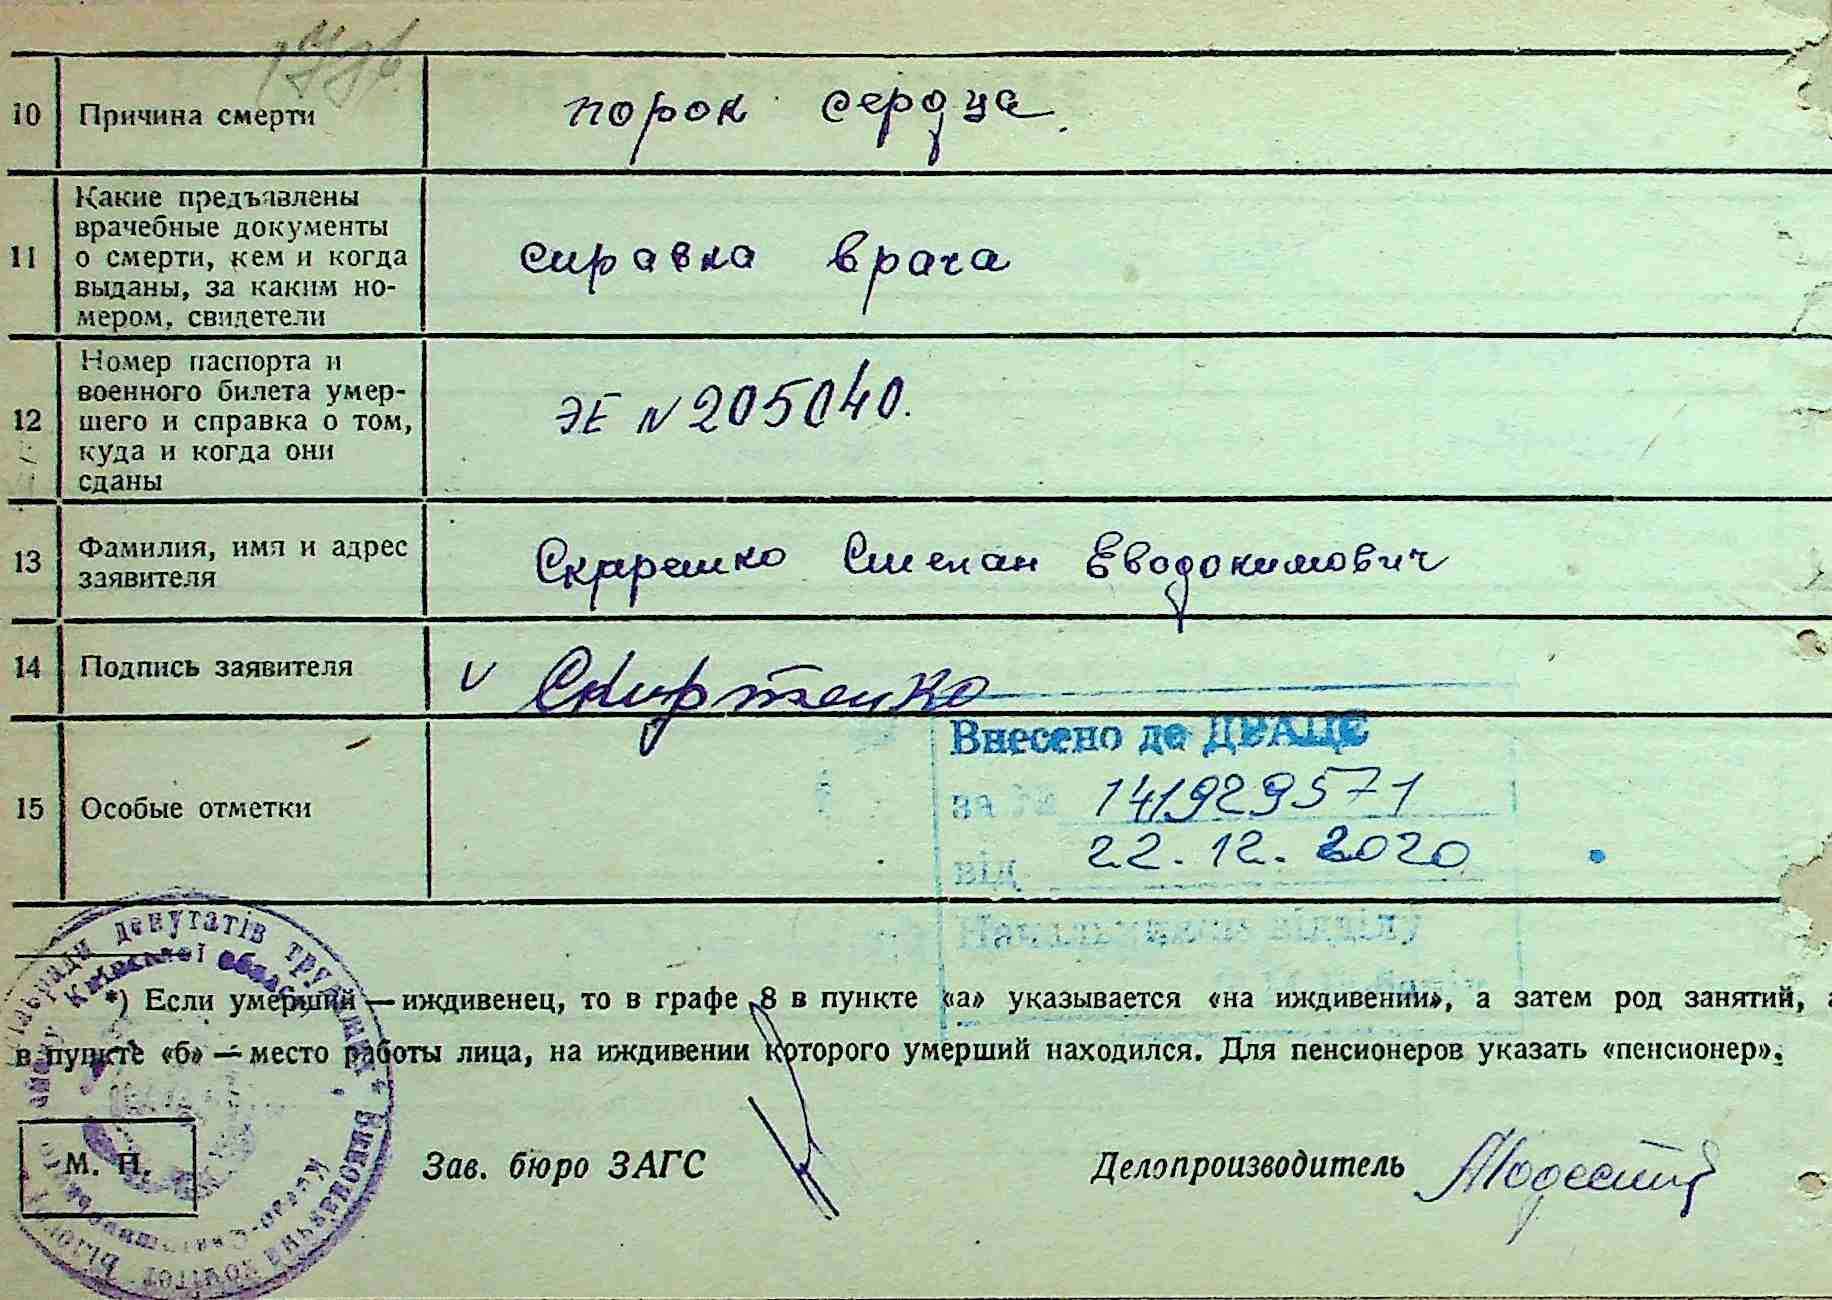 10 Причина смерти порок сердца.
11 Какие предъявлены
врачебные документы
о смерти, кем и когда
выданы, за каким но-
мером, свидетели
справка врача
12 Номер паспорта и
военного билета умер-
шего и справка о том,
куда и когда они
сданы
ЭЕ N 205040.
13 Фамилия, имя и адрес
заявителя
Степан Евдокимович
14 Подпись заявителя V
15 Особые отметки
Внесено до ДРАЦС
за № 141929571
від 22.12.2020
відділу
депутатів трудящих * Виконавчий комітет
Київської області
Києво-Святошинського
*) Если умерший — иждивенец, то в графе 8 в пункте «а» указывается «на иждивении», а затем род занятий, а
в пункте «б» — место работы лица, на иждивении которого умерший находился. Для пенсионеров указать «пенсионер».
М. П. Зав. бюро ЗАГС Делопроизводитель